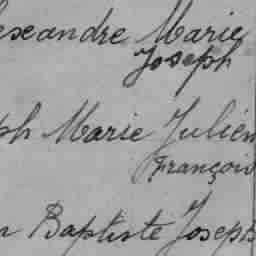 exeandre Marie
Joseph
ph Marie Julien
François
n Baptiste Joseph